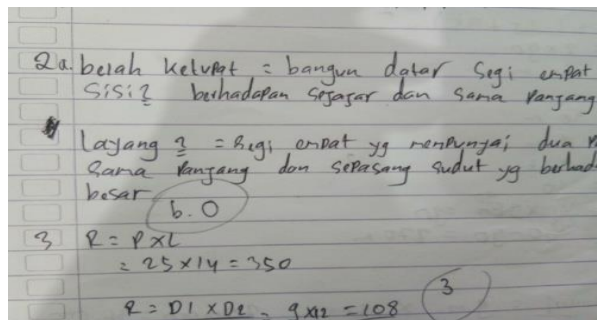 2a. belah ketupat = bangun datar segi empat
sisi2 berhadapan sejajar dan sama panjang
Layang2 = Segi empat yg mempunyai dua
sama panjang dan sepasang sudut yg berhad
besar
b. 0
3 R = P X L
= 25 X 14 = 350
3
R = D1 X D2 = 9 X 12 = 108